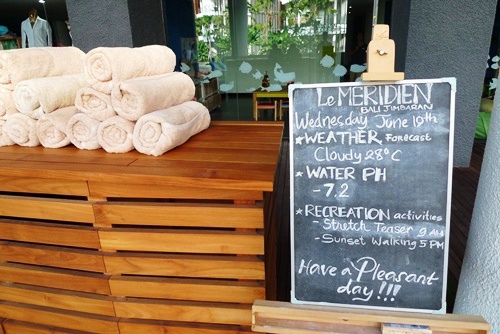 Le MERIDIEN
BALI JIMBARAN
Wednesday June 19th
* WEATHER Forecast
Cloudy 28°C
* WATER PH
- 7.2
* RECREATION activities
- Stretch Teaser 9 AM
- Sunset Walking 5 PM
Have a Pleasant
day!!!